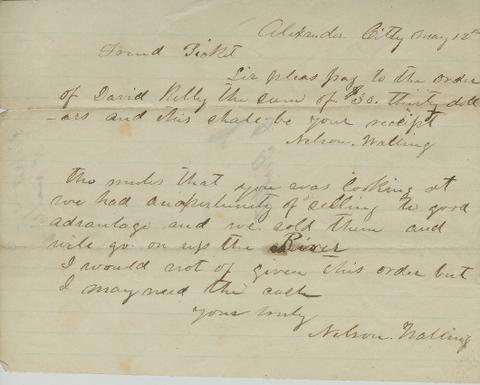 Alixander Citty May 12th
Friend Picket
Sir pleas pay to the order
of David Kelly the sum of $30. thirty doll
-ars and this shale be your receipt
Nelson. Walling
the mules that you was looking at
we had an opertunity of selling to good
advantage and we sold them and
will go on up the River
I would not of given this order but
I may need the cash
yours truly
Nelson. Walling